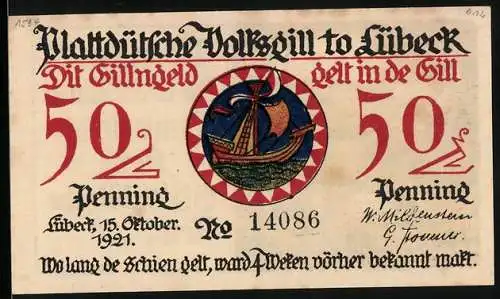 Plattdütsche Volksgill to Lübeck
Dit Gillngeld gelt in de Gill
50 50
Penning Penning
Lübeck, 15. Oktober.
1921.
No 14086
W. Mildenstein
Wo lang de Schien gelt, ward 4 Weken vörher bekannt makt.